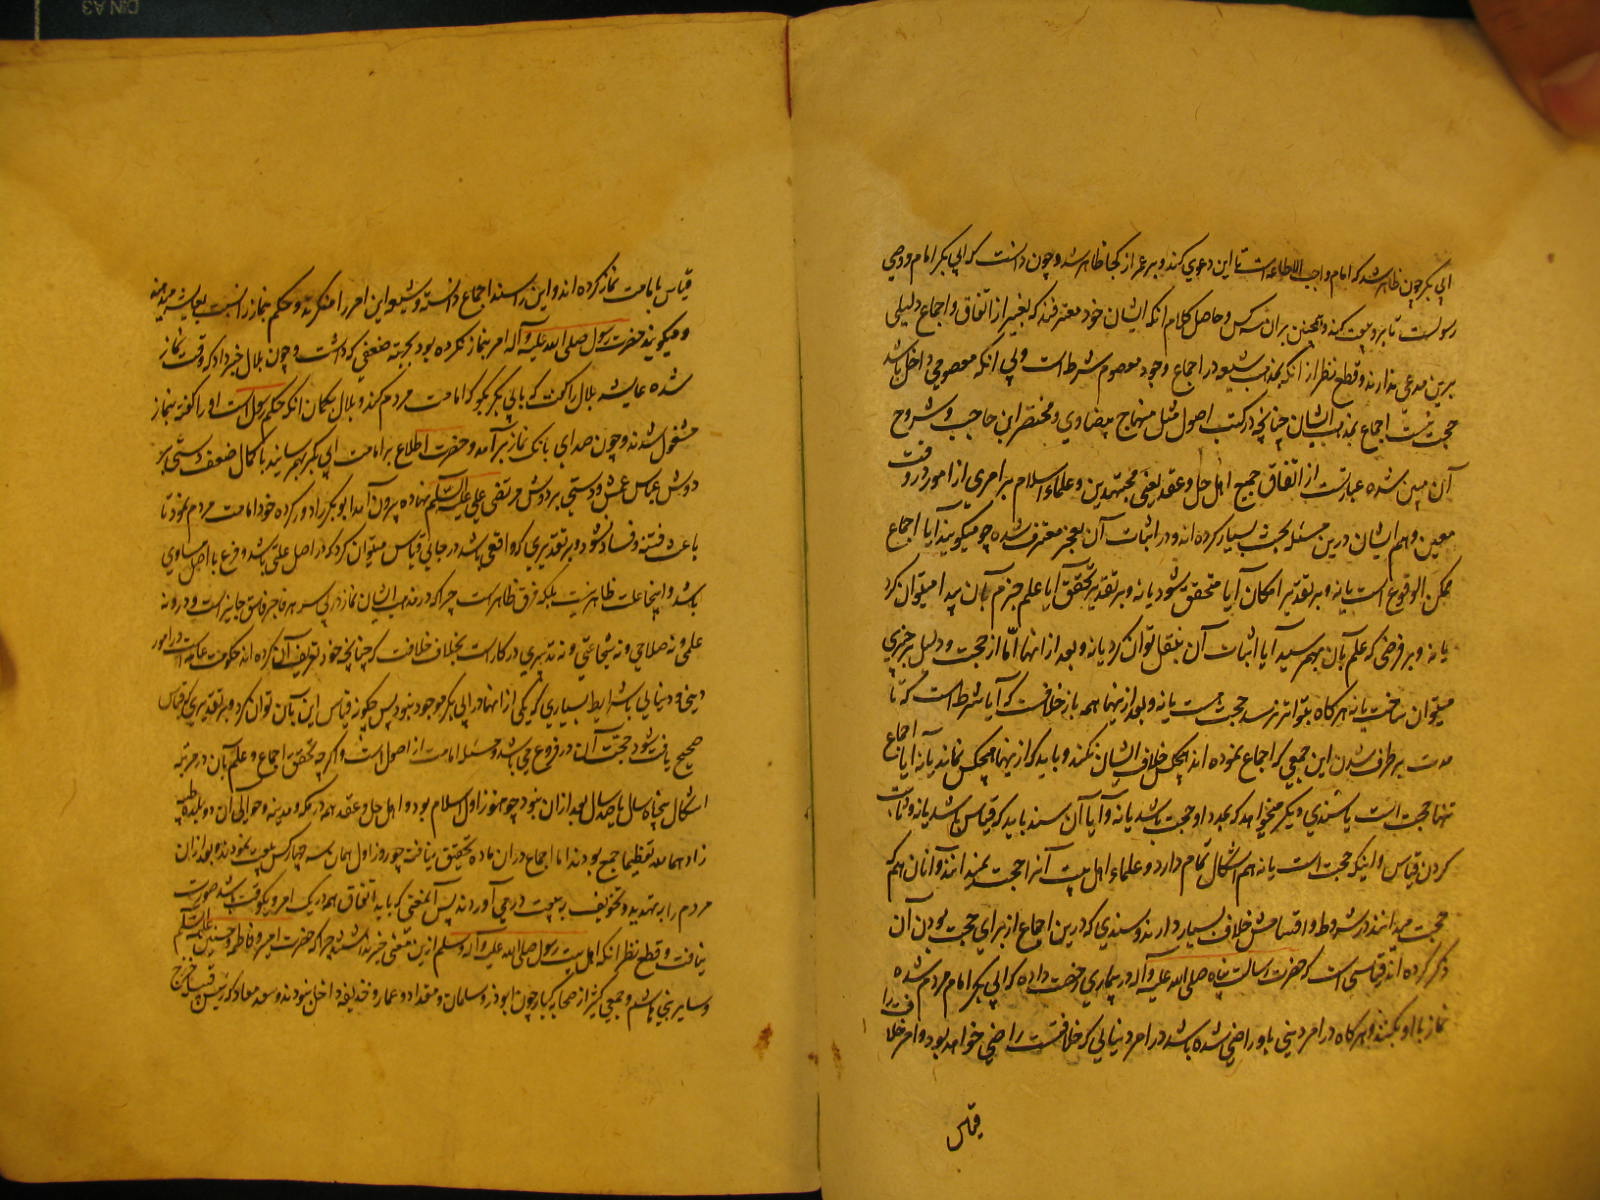 ابی بکر چون ظاهر شد که امام واجب الاطاعه است تا این دعوی کند و بر عمر از کجا ظاهر شد و چون دانست که ابی بکر امام و وصی
رسولست تا برو بیعت کند و همچنین بر آن سه کس و حاصل کلام آنکه ایشان خود معترفند که بغیر از اتفاق و اجماع دلیلی
برین مدعی ندارند و قطع نظر از آنکه بمذهب شیعه در اجماع وجود معصوم شرط است و بی آنکه معصومی داخل باشد
حجت نیست اجماع بمذهب ایشان چنانچه در کتب اصول مثل منهاج بیضاوی و مختصر ابن حاجب و شروح
آن مبین شده عبارتست از اتفاق جمیع اهل حل و عقد یعنی مجتهدین و علماء اسلام بر امری از امور در وقت
معین و هم ایشان درین مسئله بحث بسیار کرده اند و در اثبات آن بعجز معترف شده چو میگویند آیا اجماع
ممکن الوقوع است یا نه و بر تقدیر امکان آیا متحقق شود یا نه و بر تقدیر تحقق آیا علم جزم بآن پیدا میتوان کرد
یا نه و بر فرضی که علم بآن بهم رسید آیا اثبات آن بنقل توان کرد یا نه و بعد از اینها آیا از حجت و دلیل بر چیزی
میتوان ساخت یا نه هرگاه بتواتر نرسد حجت هست یا نه و بعد از اینها همه باز خلافست که آیا شرط است که تا
مدت بر طرف شدن این جمعی که اجماع نموده اند هیچکس خلاف ایشان نکند و باید که از اینها هیچکس نماند یا نه آیا اجماع
تنها حجت است یا سندی دیگر میخواهد که بمدد او حجت باشد یا نه و آیا آن سند باید که قیاس باشد یا نه و ثابت
کردن قیاس و اینکه حجت است یا نه هم اشکال تمام دارد و علماء اهل بیت آنرا حجت نمیدانند و آنان هم که
حجت میدانند در شروط و اقسامش خلاف بسیار دارند و سندی که درین اجماع از برای حجت بودن آن
ذکر کرده اند قیاسی است که حضرت رسالت پناه صلی الله علیه و آله در بیماری رخصت داده که ابی بکر امام مردم شده
نماز با او بکنند و هرگاه در امر دینی باو راضی شده باشد در امر دنیائی که خلافتست راضی خواهد بود و امر خلافت را
قیاس
قیاس بامامت نماز کرده اند و این را سند اجماع دانسته و شیعه این امر را منکرند و حکم بنماز را نسبت بعایشه میدهند
و میگویند حضرت رسول صلی الله علیه و آله امر بنماز نکرده بود بجهته ضعفی که داشت و چون بلال خبر داد که وقت نماز
شده عایشه بلال را گفت که بابی بکر بگو که امامت مردم کند و بلال بگمان آنکه حکم رسول است او را گفته بنماز
مشغول شدند و چون صدای بانک نماز برآمد و حضرت اطلاع بر امامت ابی بکر بهم رسانید با کمال ضعف دستی بر
دوش عباس عمش و دستی بر دوش مرتضی علی علیه السلم نهاده بیرون آمد ابو بکر را دور کرده خود امامت مردم نمود تا
باعث فتنه و فساد نشود و بر تقدیری که واقعی باشد در جائی قیاس میتوان کرد که در اصل علتی باشد و فرع با اصل مساوی
باشد و اینجا علت ظاهر نیست بلکه فرق ظاهر است چرا که در مذهب ایشان نماز در پی سر هر فاجر فاسق جایز است و درو نه
علمی و نه صلاحی و نه شجاعتی و نه تدبیری در کار است بخلاف خلافت که چنانچه خود تعریف آن کرده اند حکومت عامه است در امور
دینی و دنیائی با شرایط بسیاری که یکی از آنها در ابی بکر موجود نبود پس چگونه قیاس این بآن توان کرد و بر تقدیری که قیاس
صحیح یافت شود حجت آن در فروع می باشد و مسئله امامت از اصول است و اگر چه تحقق اجماع و علم بآن در مرتبه
اشکال پنجاه سال یا صد سال بعد از آن نبود چو هنوز اول اسلام بود و اهل حل و عقد همه در مکه و مدینه و حوالی آن دو بلده طیبه
زادهما الله تعظیما جمع بودند اما اجماع در آن ماده تحقیق نیافت چو روز اول همان سه چهار کس بیعت نمودند و بعد از آن
مردم را بتهدید و تخویف به بیعت در می آوردند پس آن معنی که باید اتفاق همه در یک امر و یکوقت باشد صورت
نیافت و قطع نظر آنکه اهل بیت رسول صلی الله علیه و آله و سلم ازین معنی خبر نداشتند چرا که حضرت امیر و فاطمه و حسنین علیهم السلم
و سایر بنی هاشم و جمعی کثیر از صحابه کبار چون ابو ذر و سلمان و مقداد و عمار و حذیفه داخل نبودند و سعد معاد که رئیس قبیله خزرج